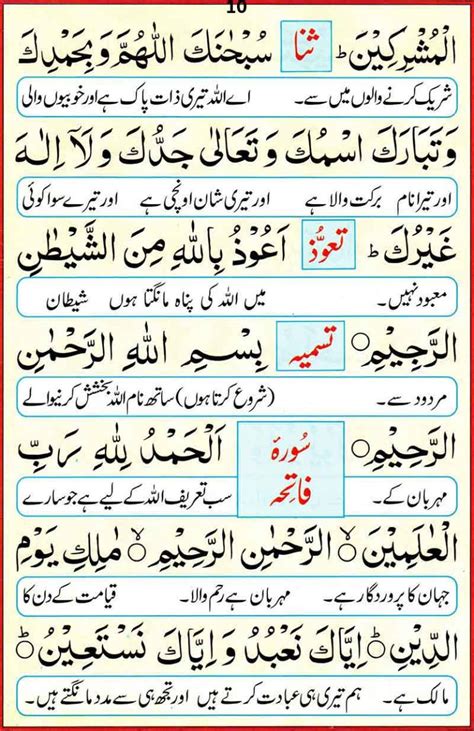 10
الْمُشْرِكِيْنَ ؕ ثنا سُبْحٰنَكَ اللّٰهُمَّ وَبِحَمْدِكَ
شریک کرنے والوں میں سے۔ اے اللہ تیری ذات پاک ہے اور خوبیوں والی
وَتَبَارَكَ اسْمُكَ وَتَعَالٰى جَدُّكَ وَلَآ اِلٰهَ
اور تیرا نام برکت والا ہے اور تیری شان اونچی ہے اور تیرے سوا کوئی
غَيْرُكَ ؕ تعوُّذ اَعُوْذُ بِاللّٰهِ مِنَ الشَّيْطٰنِ
معبود نہیں۔ میں اللہ کی پناہ مانگتا ہوں شیطان
الرَّجِيْمِ ○ تسمیہ بِسْمِ اللّٰهِ الرَّحْمٰنِ
مردود سے۔ (شروع کرتا ہوں) ساتھ نام اللہ بخشش کرنیوالے
الرَّحِيْمِ ○ سُورۂ فاتحہ اَلْحَمْدُ لِلّٰهِ رَبِّ
مہربان کے۔ سب تعریف اللہ کے لیے ہے جو سارے
الْعٰلَمِيْنَ ○ۙ الرَّحْمٰنِ الرَّحِيْمِ ○ۙ مٰلِكِ يَوْمِ
جہان کا پروردگار ہے۔ مہربان ہے رحم والا۔ قیامت کے دن کا
الدِّيْنِ ○ؕ اِيَّاكَ نَعْبُدُ وَاِيَّاكَ نَسْتَعِيْنُ ○ؕ
مالک ہے۔ ہم تیری ہی عبادت کرتے ہیں اور تجھ ہی سے مدد مانگتے ہیں۔